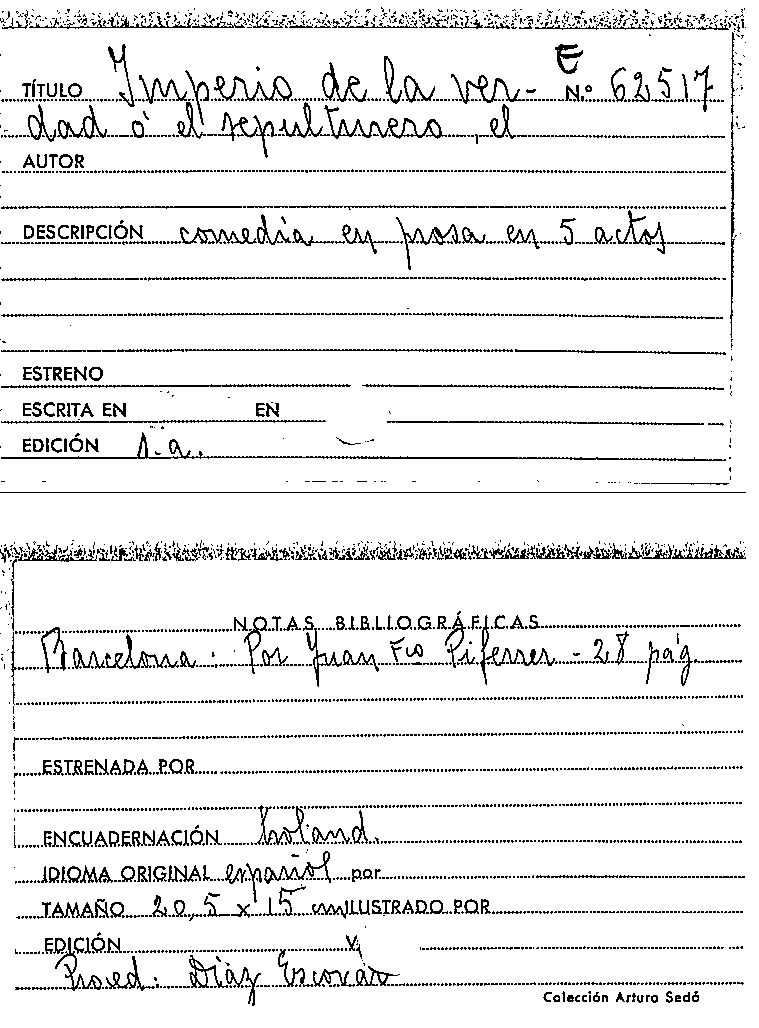 E
TÍTULO Imperio de la ver- N.º 62517
dad ó el sepulturero, el
AUTOR
DESCRIPCIÓN comedia en prosa en 5 actos
ESTRENO
ESCRITA EN EN
EDICIÓN s.a.
NOTAS BIBLIOGRÁFICAS
Barcelona: Por Juan Fco Piferrer - 28 pág.
ESTRENADA POR
ENCUADERNACIÓN holand.
IDIOMA ORIGINAL español por
TAMAÑO 20,5 x 15 cm ILUSTRADO POR
EDICIÓN V.
Proced: Díaz Escovar
Colección Arturo Sedó